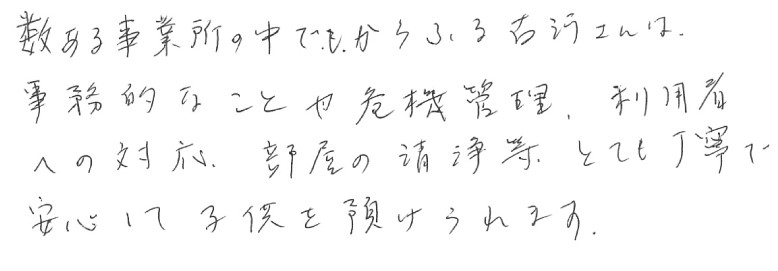 数ある事業所の中でもからふる古沢さんは、
事務的なことや危機管理、利用者
への対応、部屋の清浄等、とても丁寧で
安心して子供を預けられます。